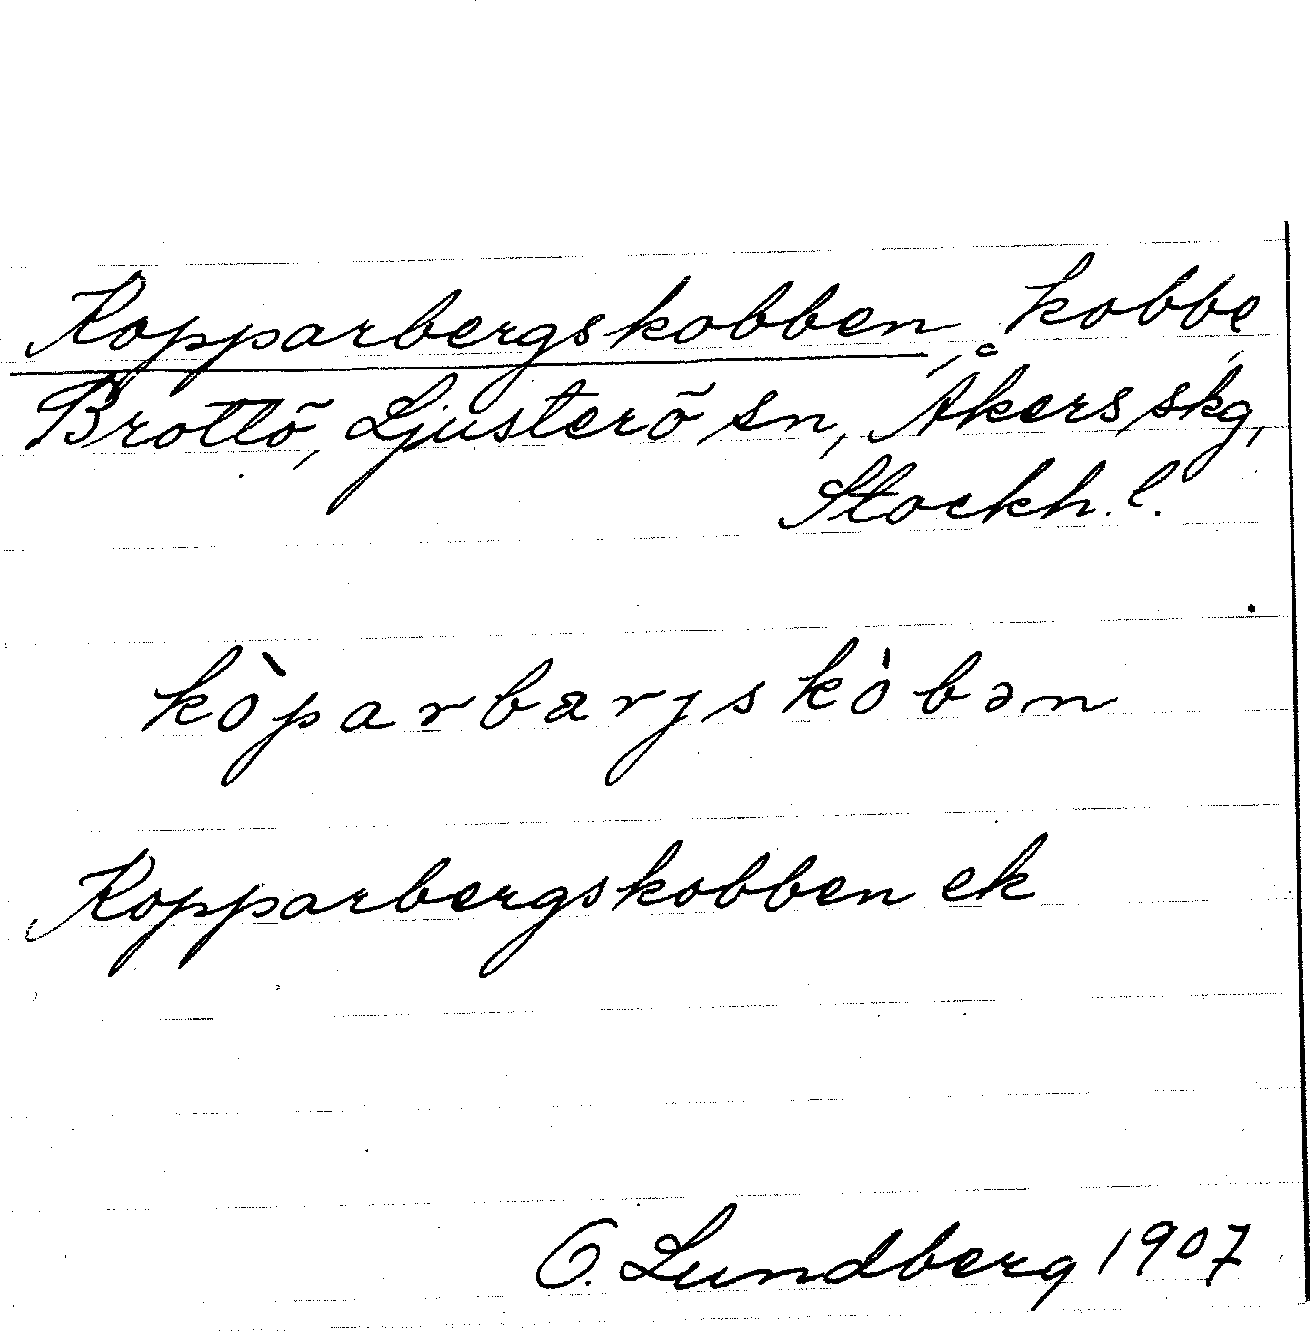 Kopparbergskobben, kobbe,
Brottö, Ljusterö sn, Åkers skg,
Stockh. l.
kòparbærjskòbən
Kopparbergskobben ek
O. Lundberg 1907